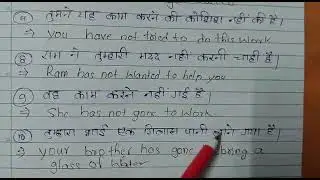 तुमने यह काम करने की कोशिश नहीं की है।
⇒ you have not tried to do this work
⑧ राम ने तुम्हारी मदद नहीं करनी चाही है।
⇒ Ram has not wanted to help you
⑨ वह काम करने नहीं गई है।
⇒ She has not gone to work.
⑩ तुम्हारा भाई एक गिलास पानी लाने गया है।
⇒ your brother has gone bring a
glass of water